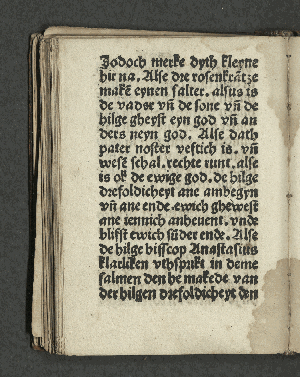 Jodoch merke dyth kleyne
hir na. Alse dre rosenkrātze
makē eynen salter. alsus is
de vader vñ de sone vñ de
hilge gheyst eyn god vñ an
ders neyn god. Alse dath
pater noster veftich is. vñ
wesē schal. rechte runt. alse
is ok de ewige god. de hilge
drefoldicheyt ane ambegyn
vñ ane ende. ewich ghewest
ane iennich anheuent. vnde
blifft ewich sūder ende. Alse
de hilge bisscop Anastasius
klarliken vthsprikt in deme
salmen den he makede van
der hilgen drefoldicheyt den